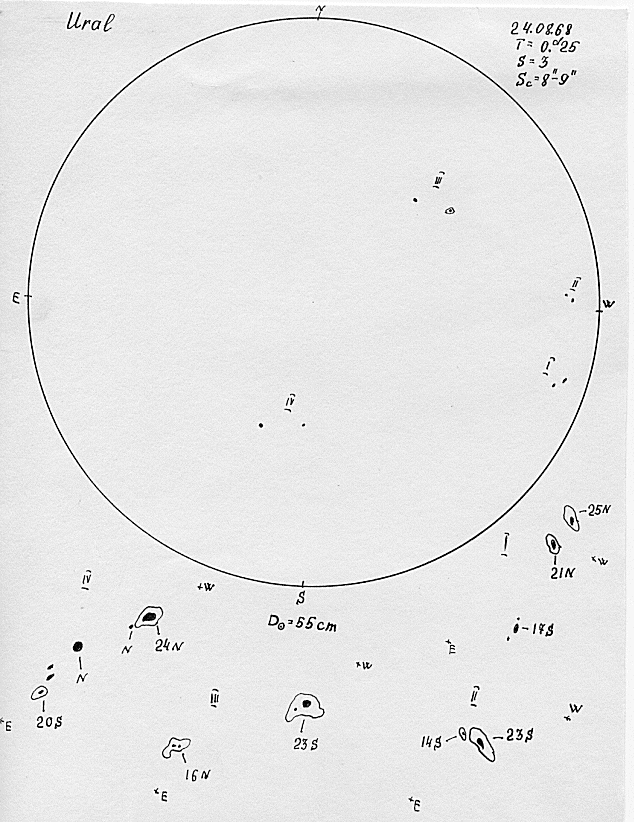 Ural
24.08.68
T = 0.ᵈ25
S = 3
Sc = 8"-9"
III
E
II
W
I
IV
S
D⊙ = 55 cm
I
25N
21N
W
17S
E
IV
W
N
24N
N
20S
E
III
W
23S
16N
E
II
W
14S
23S
E